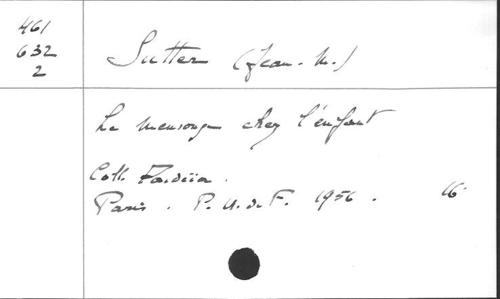 461
632
2
Sutter (Jean. M.)
Le mensonge chez l'enfant
Coll. Païdeïa.
Paris. P. U. d. F. 1956. 16°